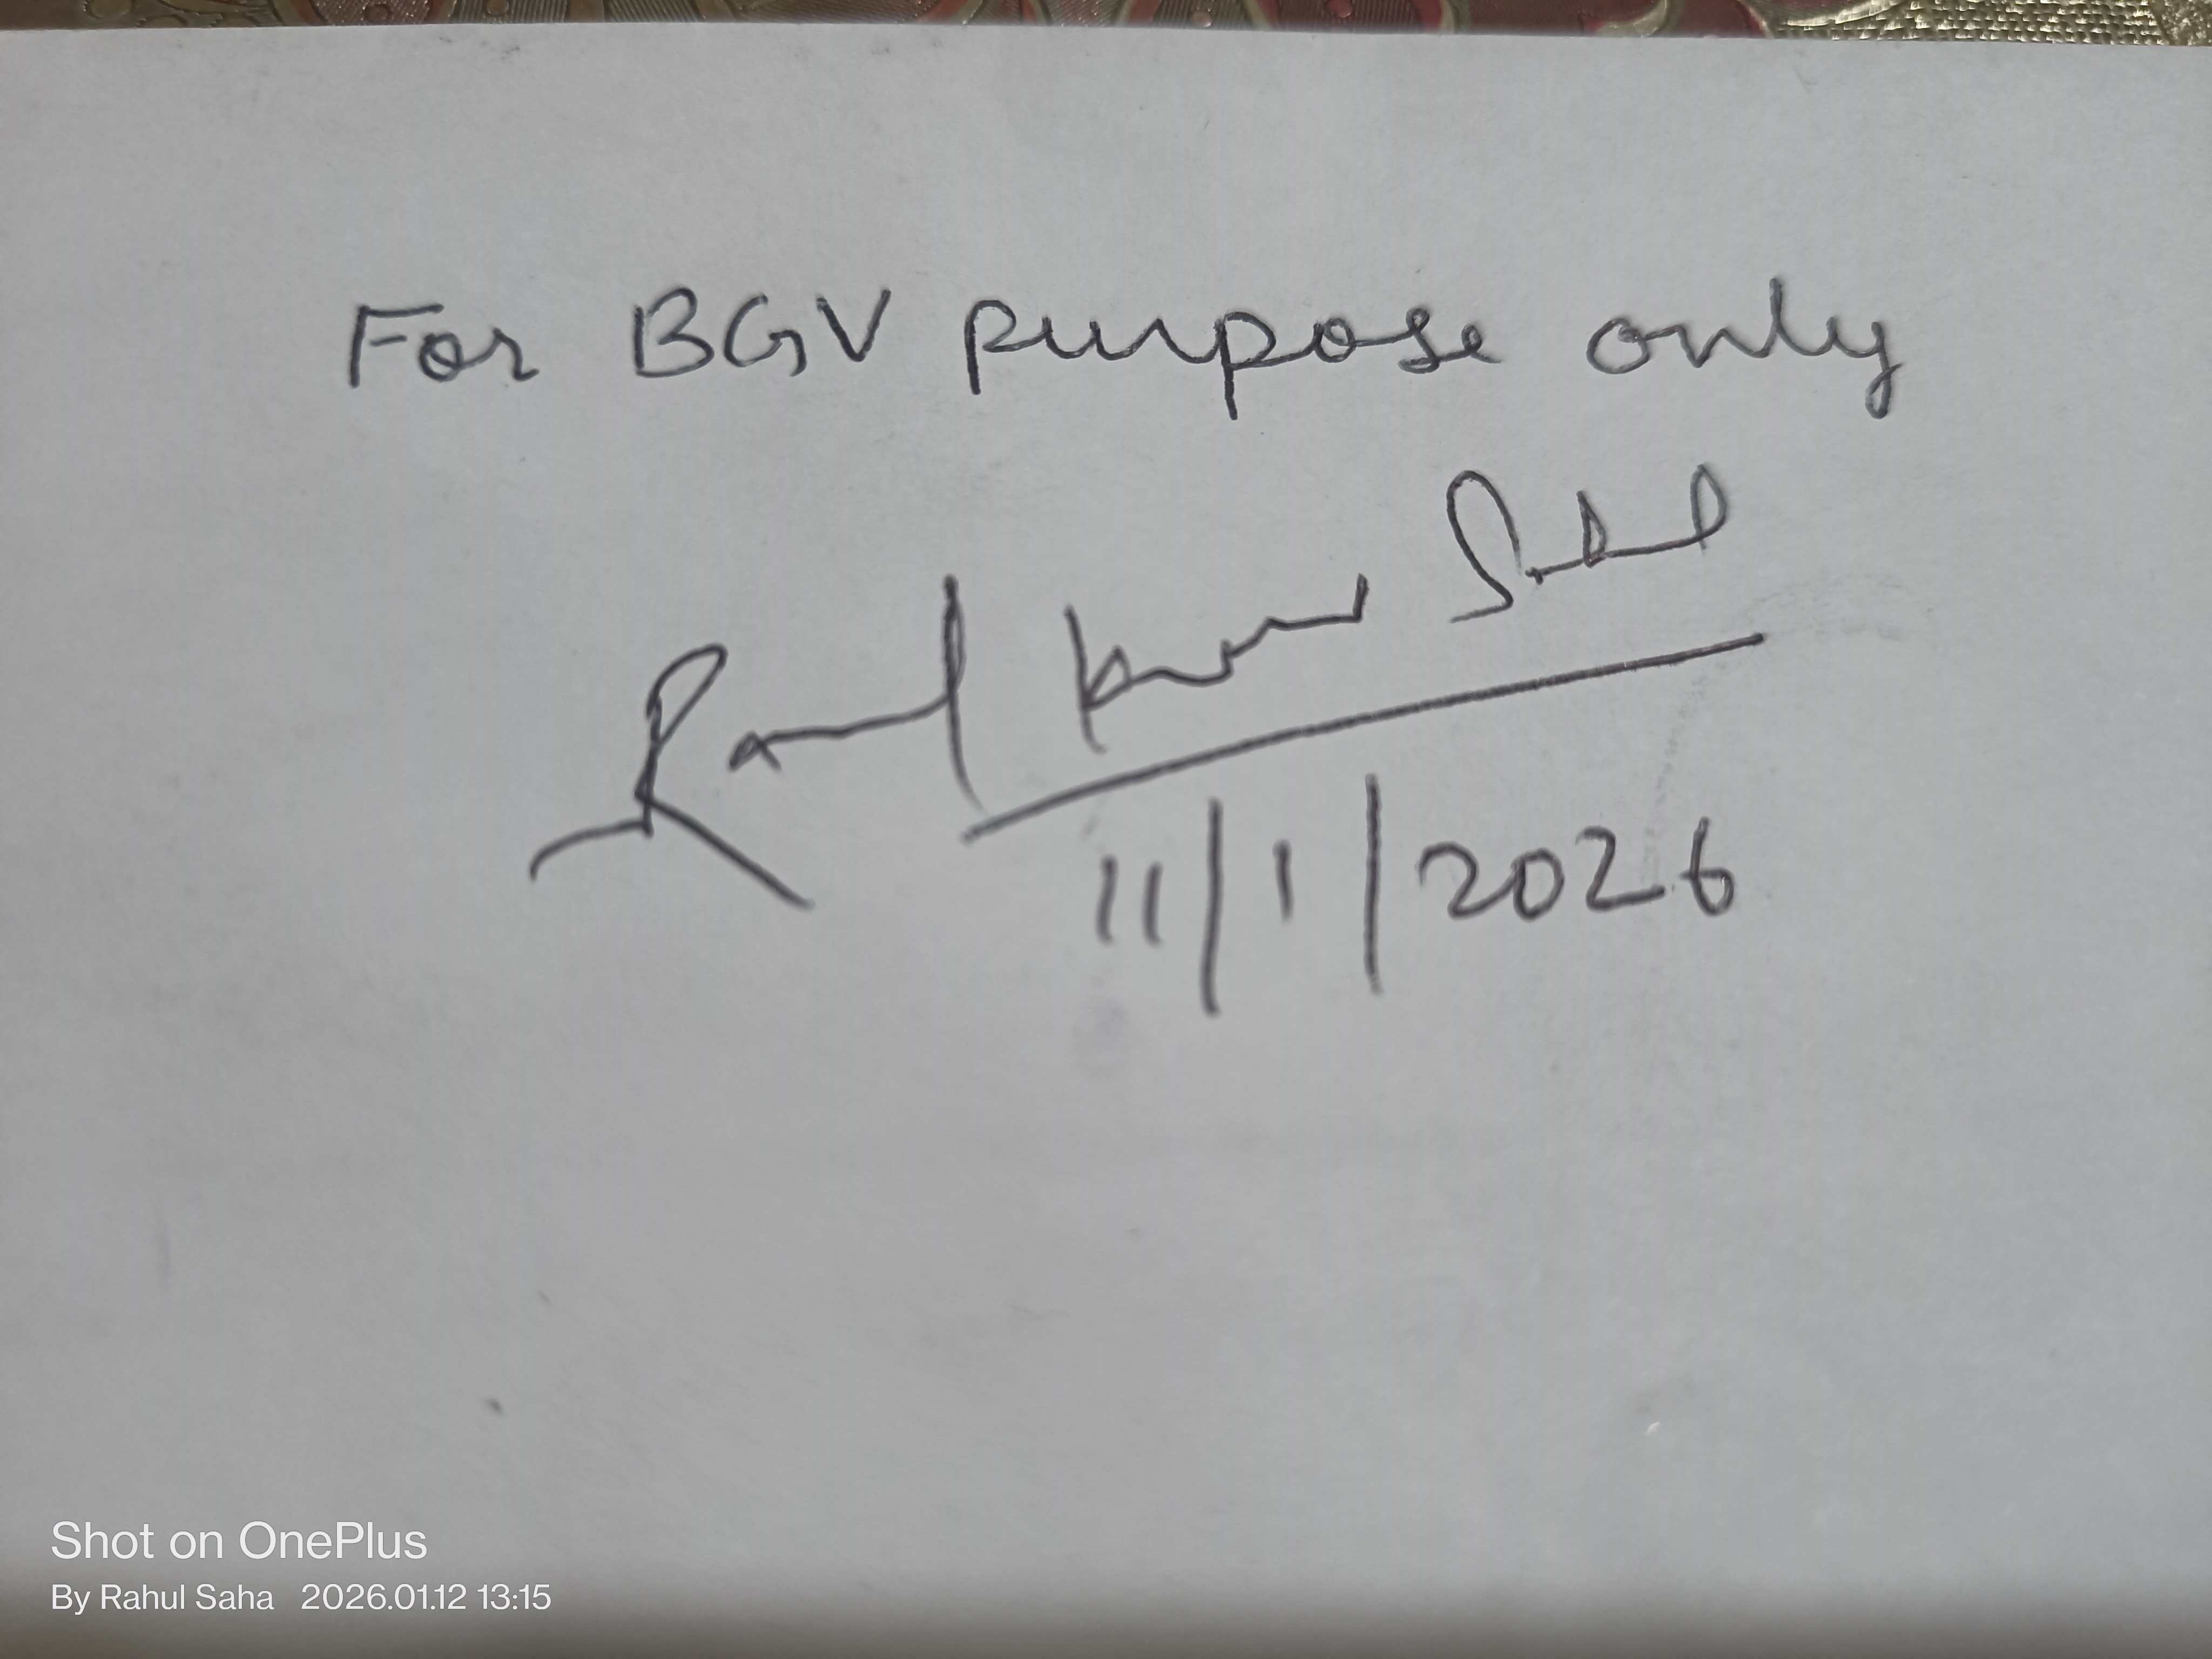 For BGV purpose only
Rahul Kumar Saha
11/1/2026
Shot on OnePlus
By Rahul Saha 2026.01.12 13:15